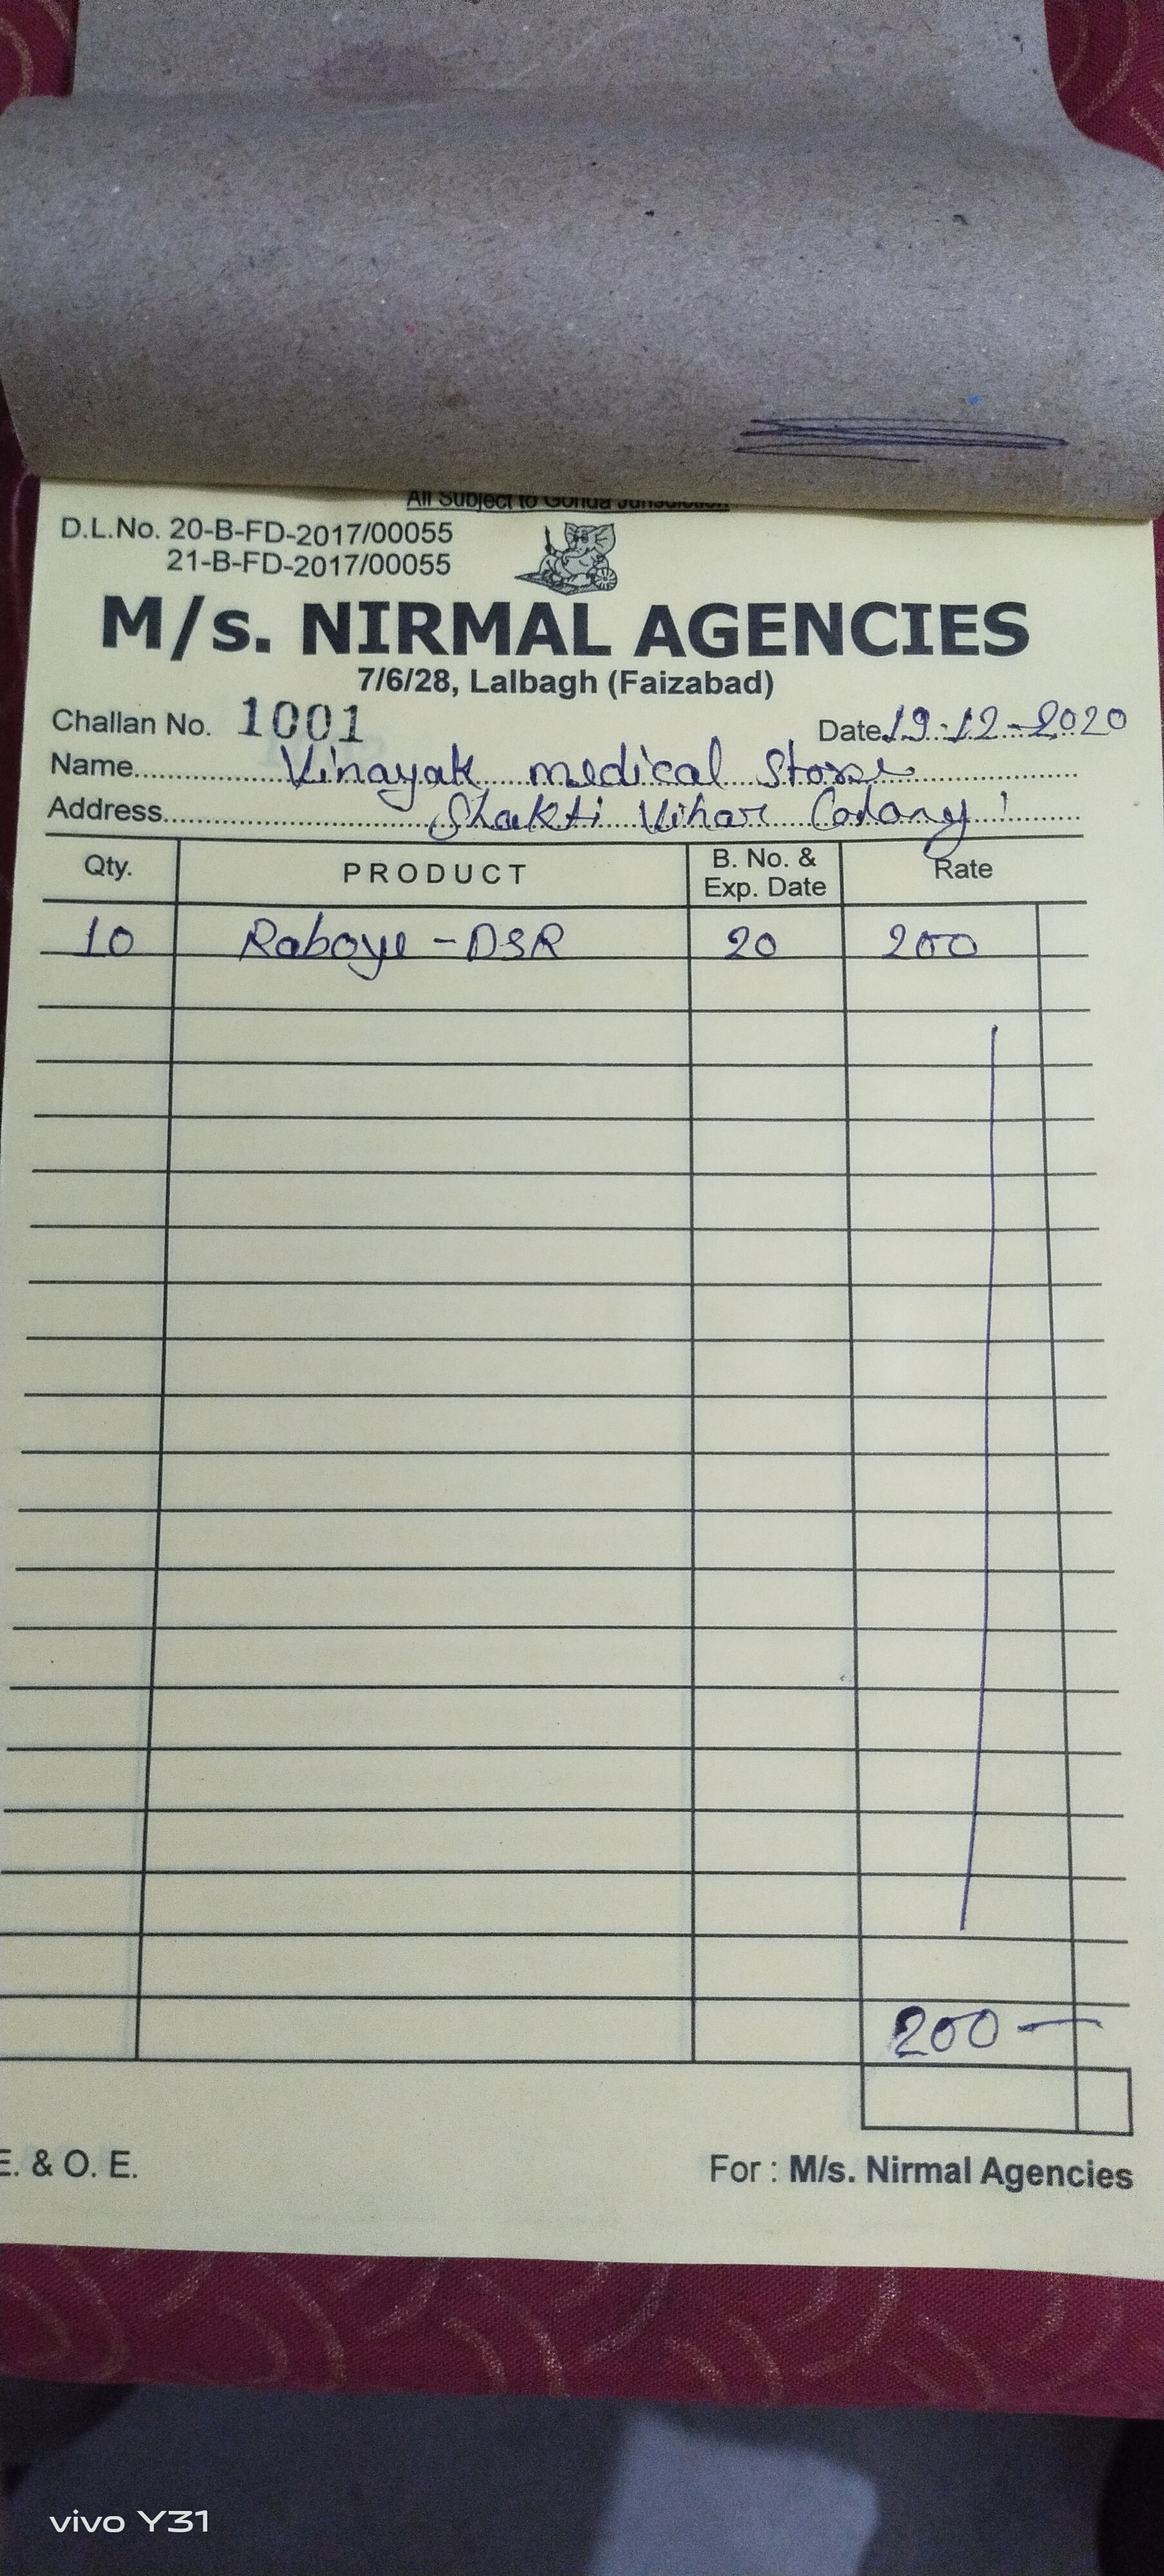 All Subject to Gonda Jurisdiction
D.L.No. 20-B-FD-2017/00055
21-B-FD-2017/00055
M/s. NIRMAL AGENCIES
7/6/28, Lalbagh (Faizabad)
Challan No. 1001 Date 19-12-2020
Name Vinayak medical Store
Address Shakti Vihar Colony
Qty. PRODUCT B. No. & Exp. Date Rate
10 Raboye-DSR 20 200
200
E. & O. E. For : M/s. Nirmal Agencies
vivo Y31